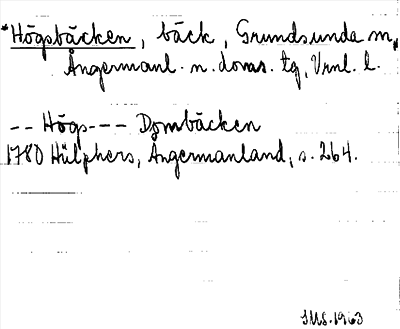 *Högsbäcken, bäck, Grundsunda sn,
Ångermanl. n. doms. tg, Vrnl. l.
-- Högs--- Dombäcken
1780 Hülphers, Ångermanland, s. 264.
1963